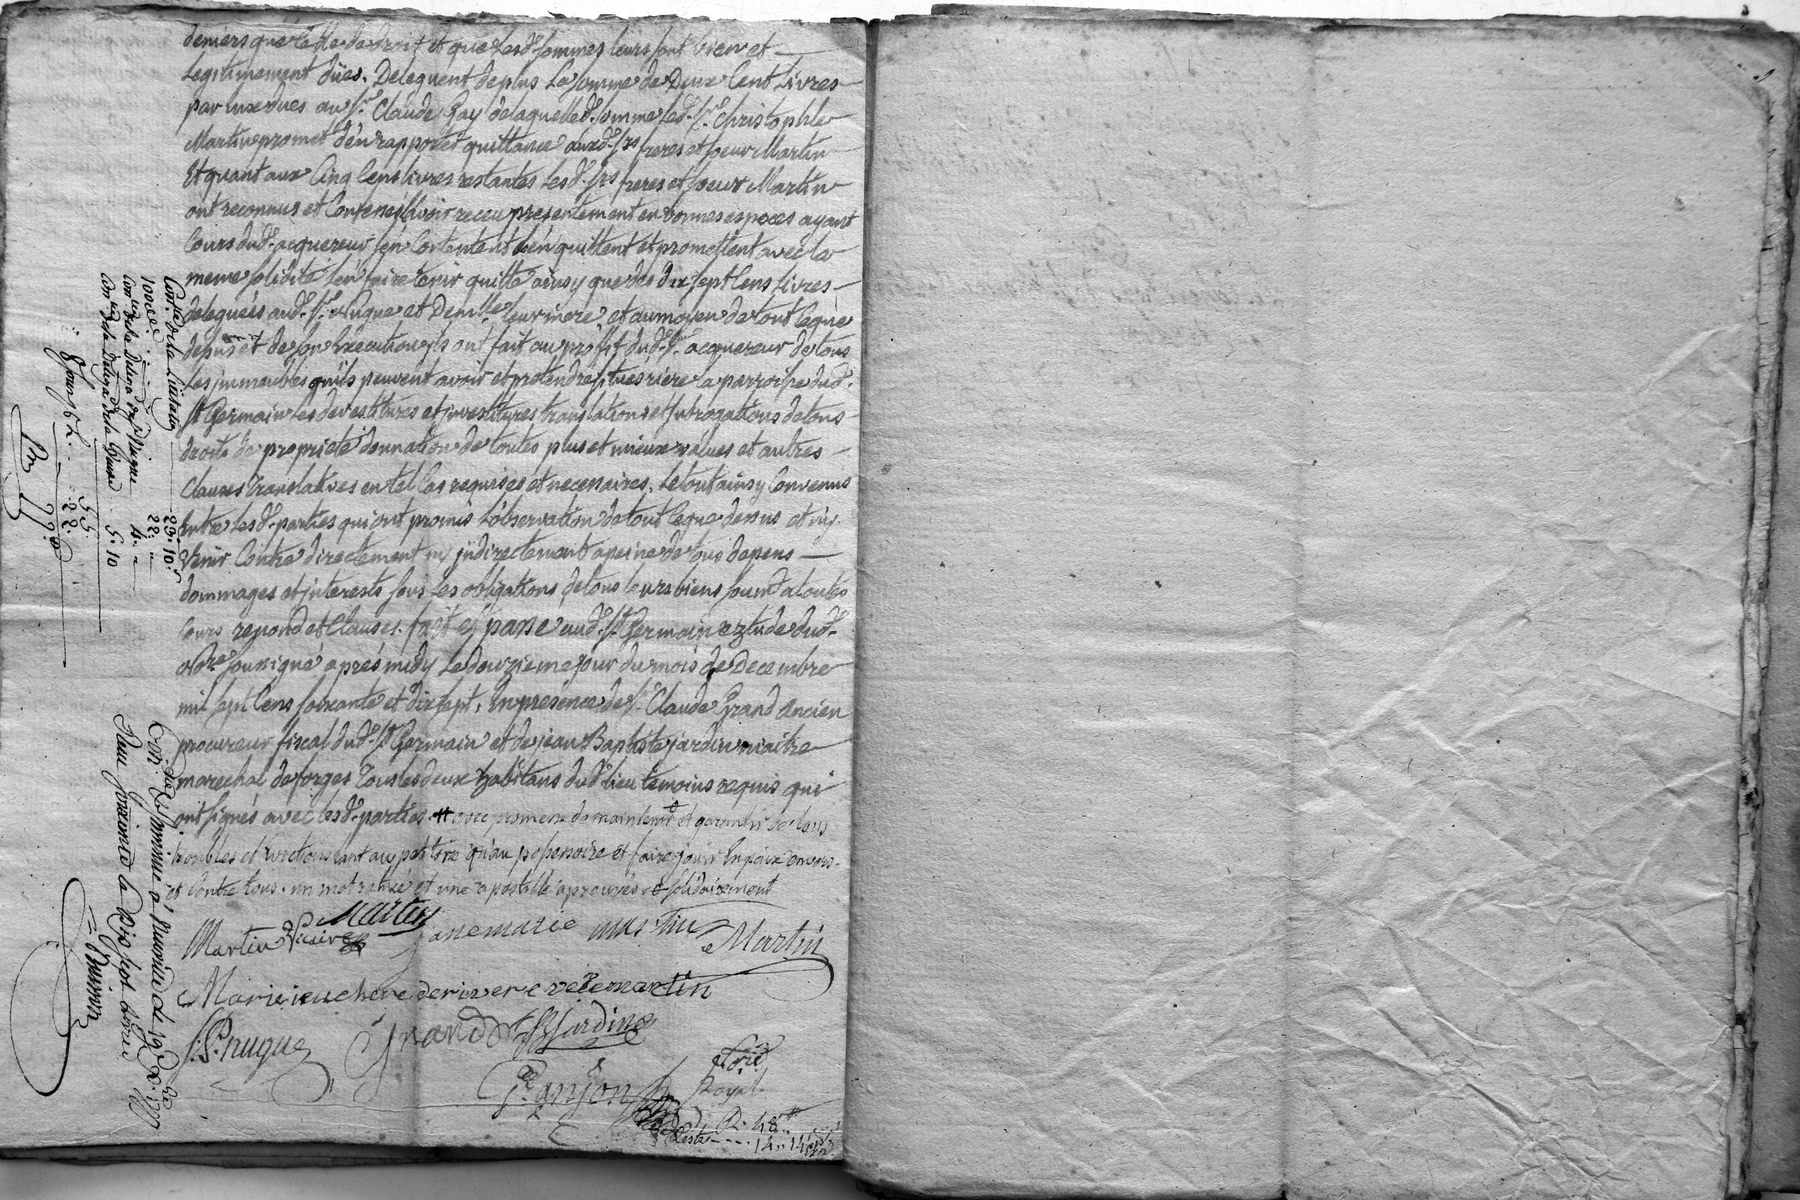 deniers que telle de droit et que lesd. sommes leurs sont bien et
Legitimement düës. Deleguent de plus la somme de Deux Cent Livres
par luxe dues au Sr. Claude Gay delaquelle d. somme led. Sr. Christophle
Martin promet d'en rapporter quittance auxd. Srs freres et soeur Martin
Et quant aux Cinq Cens livres restantes Lesd. Srs freres et soeur Martin
ont reconnus et Confenés avoir receu presentement en bonnes especes ayant
Cours dud. acquereur s'en Contentent l'en quittent et promettent avec la
meme solidité l'en faire tenir quitte ainsy que des dix sept Cens Livres
deleguées aud. Sr. Nugue et Demlle leur mere et au moyen de tout ce que
depuis et de son Execution ils ont fait au profit dud. Sr. acquereur de tous
Les immeubles qu'ils peuvent avoir et pretendre situes riere la parroisse dud.
St Germain les devestitures et investitures translations et subrogations de tous
droits de proprieté donnation de toutes plus et mieux values et autres
Clauses translatives en tel Cas requises et necessaires. Le tout ainsy Convenus
Entre Lesd. parties qui ont promis L'observation de tout ce que dessus et n'y
Venir Contre directement ny indirectement a peine de tous depens
dommages et interests sous Les obligations de tous leurs biens soumd. a toutes
Cours renond. et Clauses. fait et passé aud. St Germain eztude dud.
Nore sousigné aprés midy Le douzieme jour du mois de Decembre
mil sept Cens soixante et dix sept, En presence de Sr. Claude Grand Ancien
procureur fiscal dud. St Germain et de jean Baptiste jardin maitre
marechal de forges tous les deux habitans dud. lieu temoins requis qui
ont signés avec lesd. parties. # avec promesse de maintenir et garentir de tous
troubles et evictions tant au petitoire qu'au possessoire et faire jouir En paix envers
et contre tous. un mot rature et une apostille aprouvés. solidairement
Martin
Martin Vicaire janemarie martin Martin
Marie ieuchere derivere veve martin
Nugue Grand JB jardin
Granjon
Nore Royal
R. 48
Reste 14.. 14
Cont. de la Licitation 23. 10
100e de 22.
Con de la Deleg. de Sr. Nugue 4.
Con de la Deleg. de la Veuve 5. 10
55
22
77
Con. et Insinué a le 19 Xbre 1777
Reçu soixante & dix sept livres